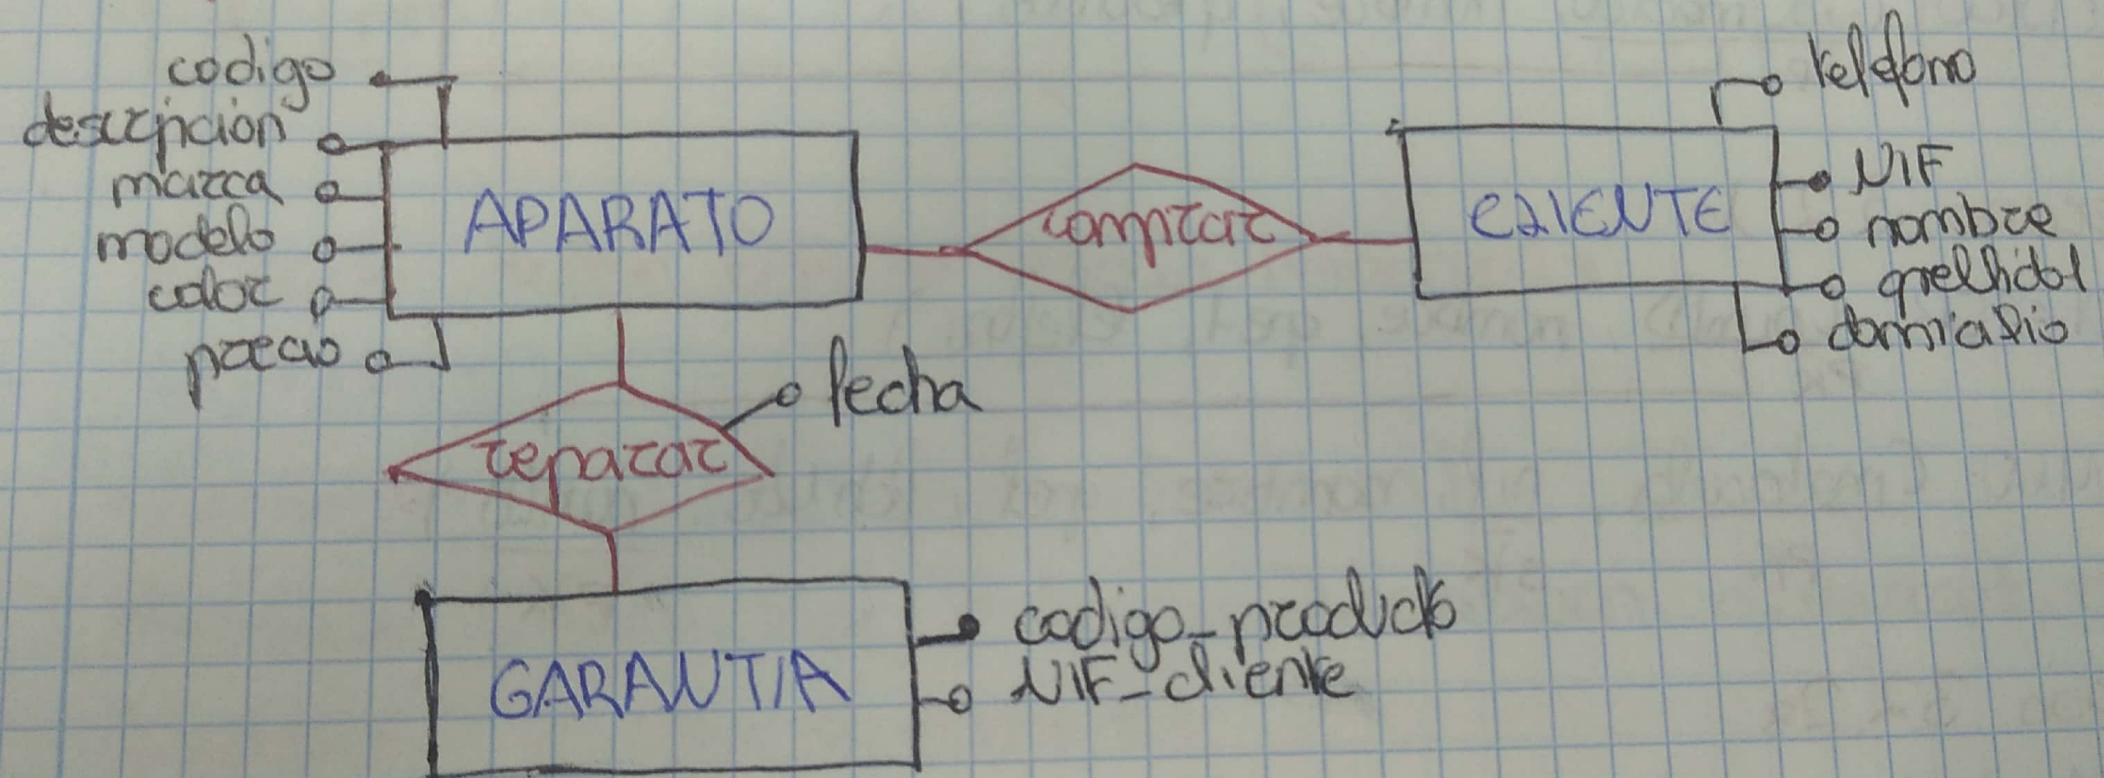 codigo
descripcion
marca
modelo
color
precio
APARATO
comprar
CLIENTE
telefono
NIF
nombre
apellido1
domicilio
reparar
fecha
GARANTIA
codigo_producto
NIF_cliente